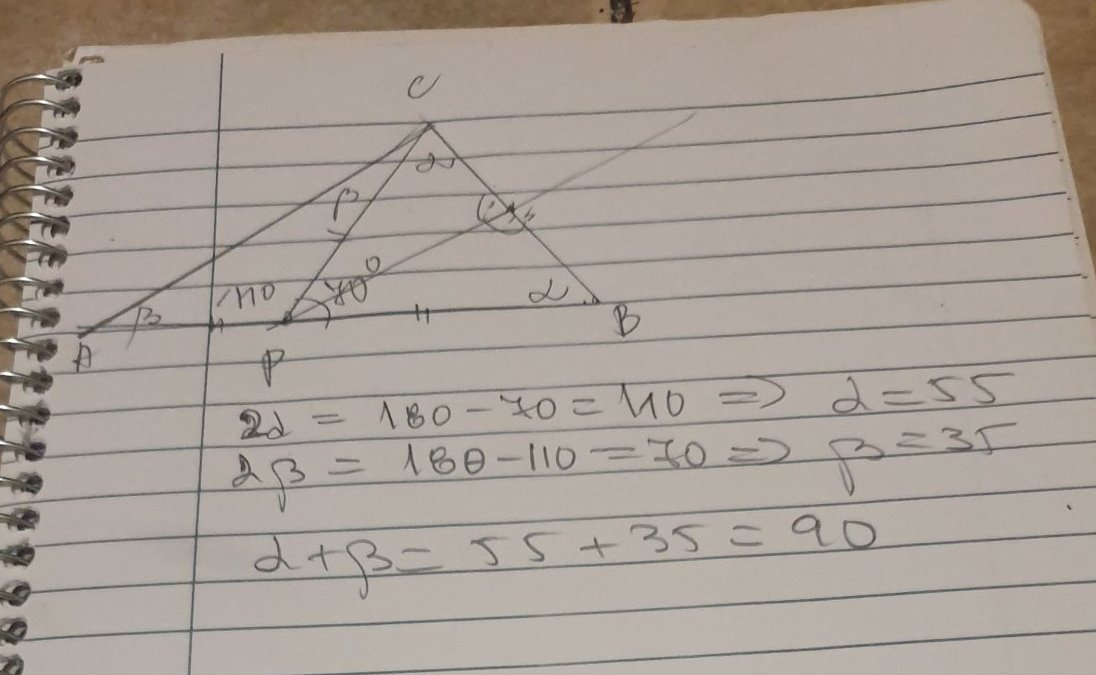 C
α
β
110 70°
β α
A P B
2α = 180 - 70 = 110 => α = 55
2β = 180 - 110 = 70 => β = 35
α + β = 55 + 35 = 90